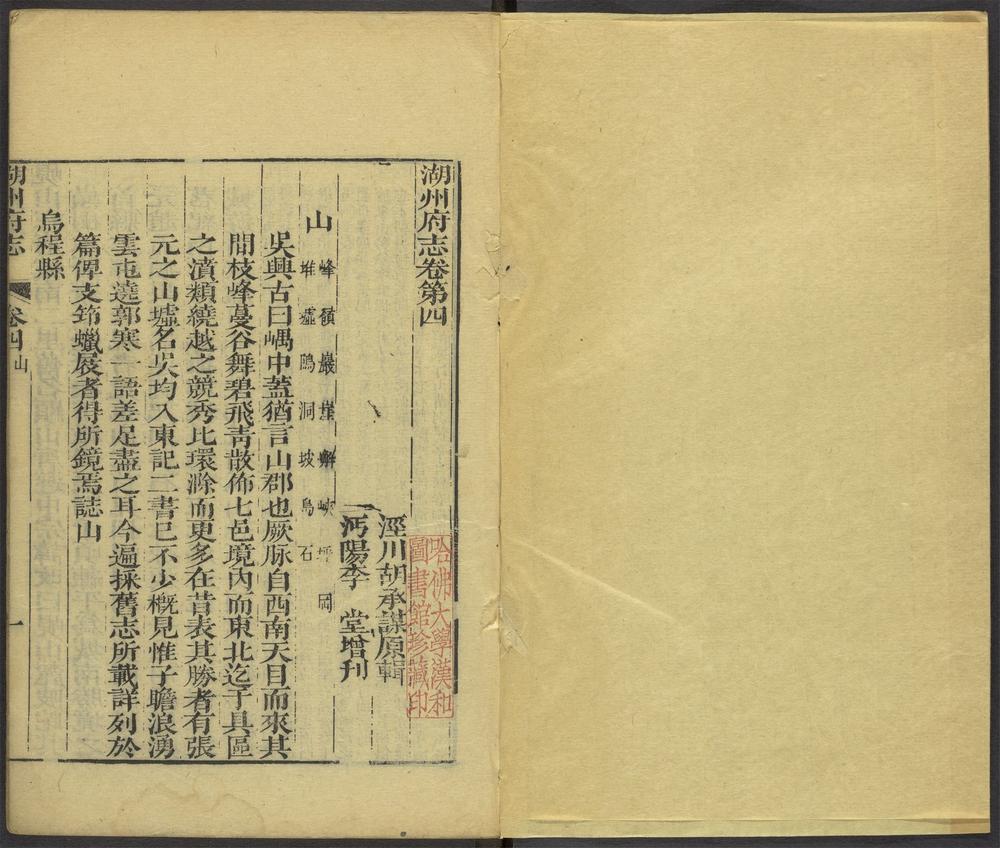 湖州府志卷第四
涇川胡承謀原輯
沔陽李　堂增刊
哈佛大學漢和
圖書館珍藏印
山
峰嶺巖崖嶰峽坪岡
堆墟鴎洞坡島石
吳興古曰嵎中蓋猶言山郡也厥脉自西南天目而來其
間枝峰蔓谷舞碧飛青散佈七邑境內而東北迄于具區
之濆類繞越之競秀比環滁而更多在昔表其勝者有張
元之山墟名吳均入東記二書已不少槪見惟子瞻浪湧
雲屯遶郭寒一語差足盡之耳今遍採舊志所載詳列於
篇俾支筇蠟屐者得所鏡焉誌山
烏程縣
湖州府志
卷四
山
一